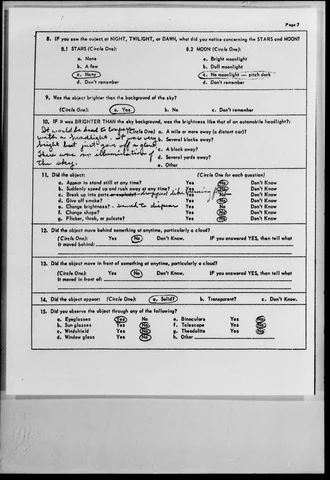 Page 7
8. IF you saw the object at NIGHT, TWILIGHT, or DAWN, what did you notice concerning the STARS and MOON?
8.1 STARS (Circle One): 8.2 MOON (Circle One):
a. None a. Bright moonlight
b. A few b. Dull moonlight
c. Many c. No moonlight — pitch dark
d. Don't remember d. Don't remember
9. Was the object brighter than the background of the sky?
(Circle One): a. Yes b. No c. Don't remember
10. IF it was BRIGHTER THAN the sky background, was the brightness like that of an automobile headlight?:
It would be hard to compare (Circle One) a. A mile or more away (a distant car)?
with a headlight. It was very b. Several blocks away?
bright but just gave off a glow. c. A block away?
There was no illumination of d. Several yards away?
the sky. e. Other
11. Did the object: (Circle One for each question)
a. Appear to stand still at any time? Yes No Don't Know
b. Suddenly speed up and rush away at any time? Yes No Don't Know
c. Break up into parts or explode? Yes No Don't Know
d. Give off smoke? Yes No Don't Know
e. Change brightness? - seemed to disappear Yes No Don't Know
f. Change shape? Yes No Don't Know
g. Flicker, throb, or pulsate? Yes No Don't Know
12. Did the object move behind something at anytime, particularly a cloud?
(Circle One): Yes No Don't Know. IF you answered YES, then tell what
it moved behind:
13. Did the object move in front of something at anytime, particularly a cloud?
(Circle One): Yes No Don't Know. IF you answered YES, then tell what
it moved in front of:
14. Did the object appear: (Circle One): a. Solid? b. Transparent? c. Don't Know.
15. Did you observe the object through any of the following?
a. Eyeglasses Yes No e. Binoculars Yes No
b. Sun glasses Yes No f. Telescope Yes No
c. Windshield Yes No g. Theodolite Yes No
d. Window glass Yes No h. Other